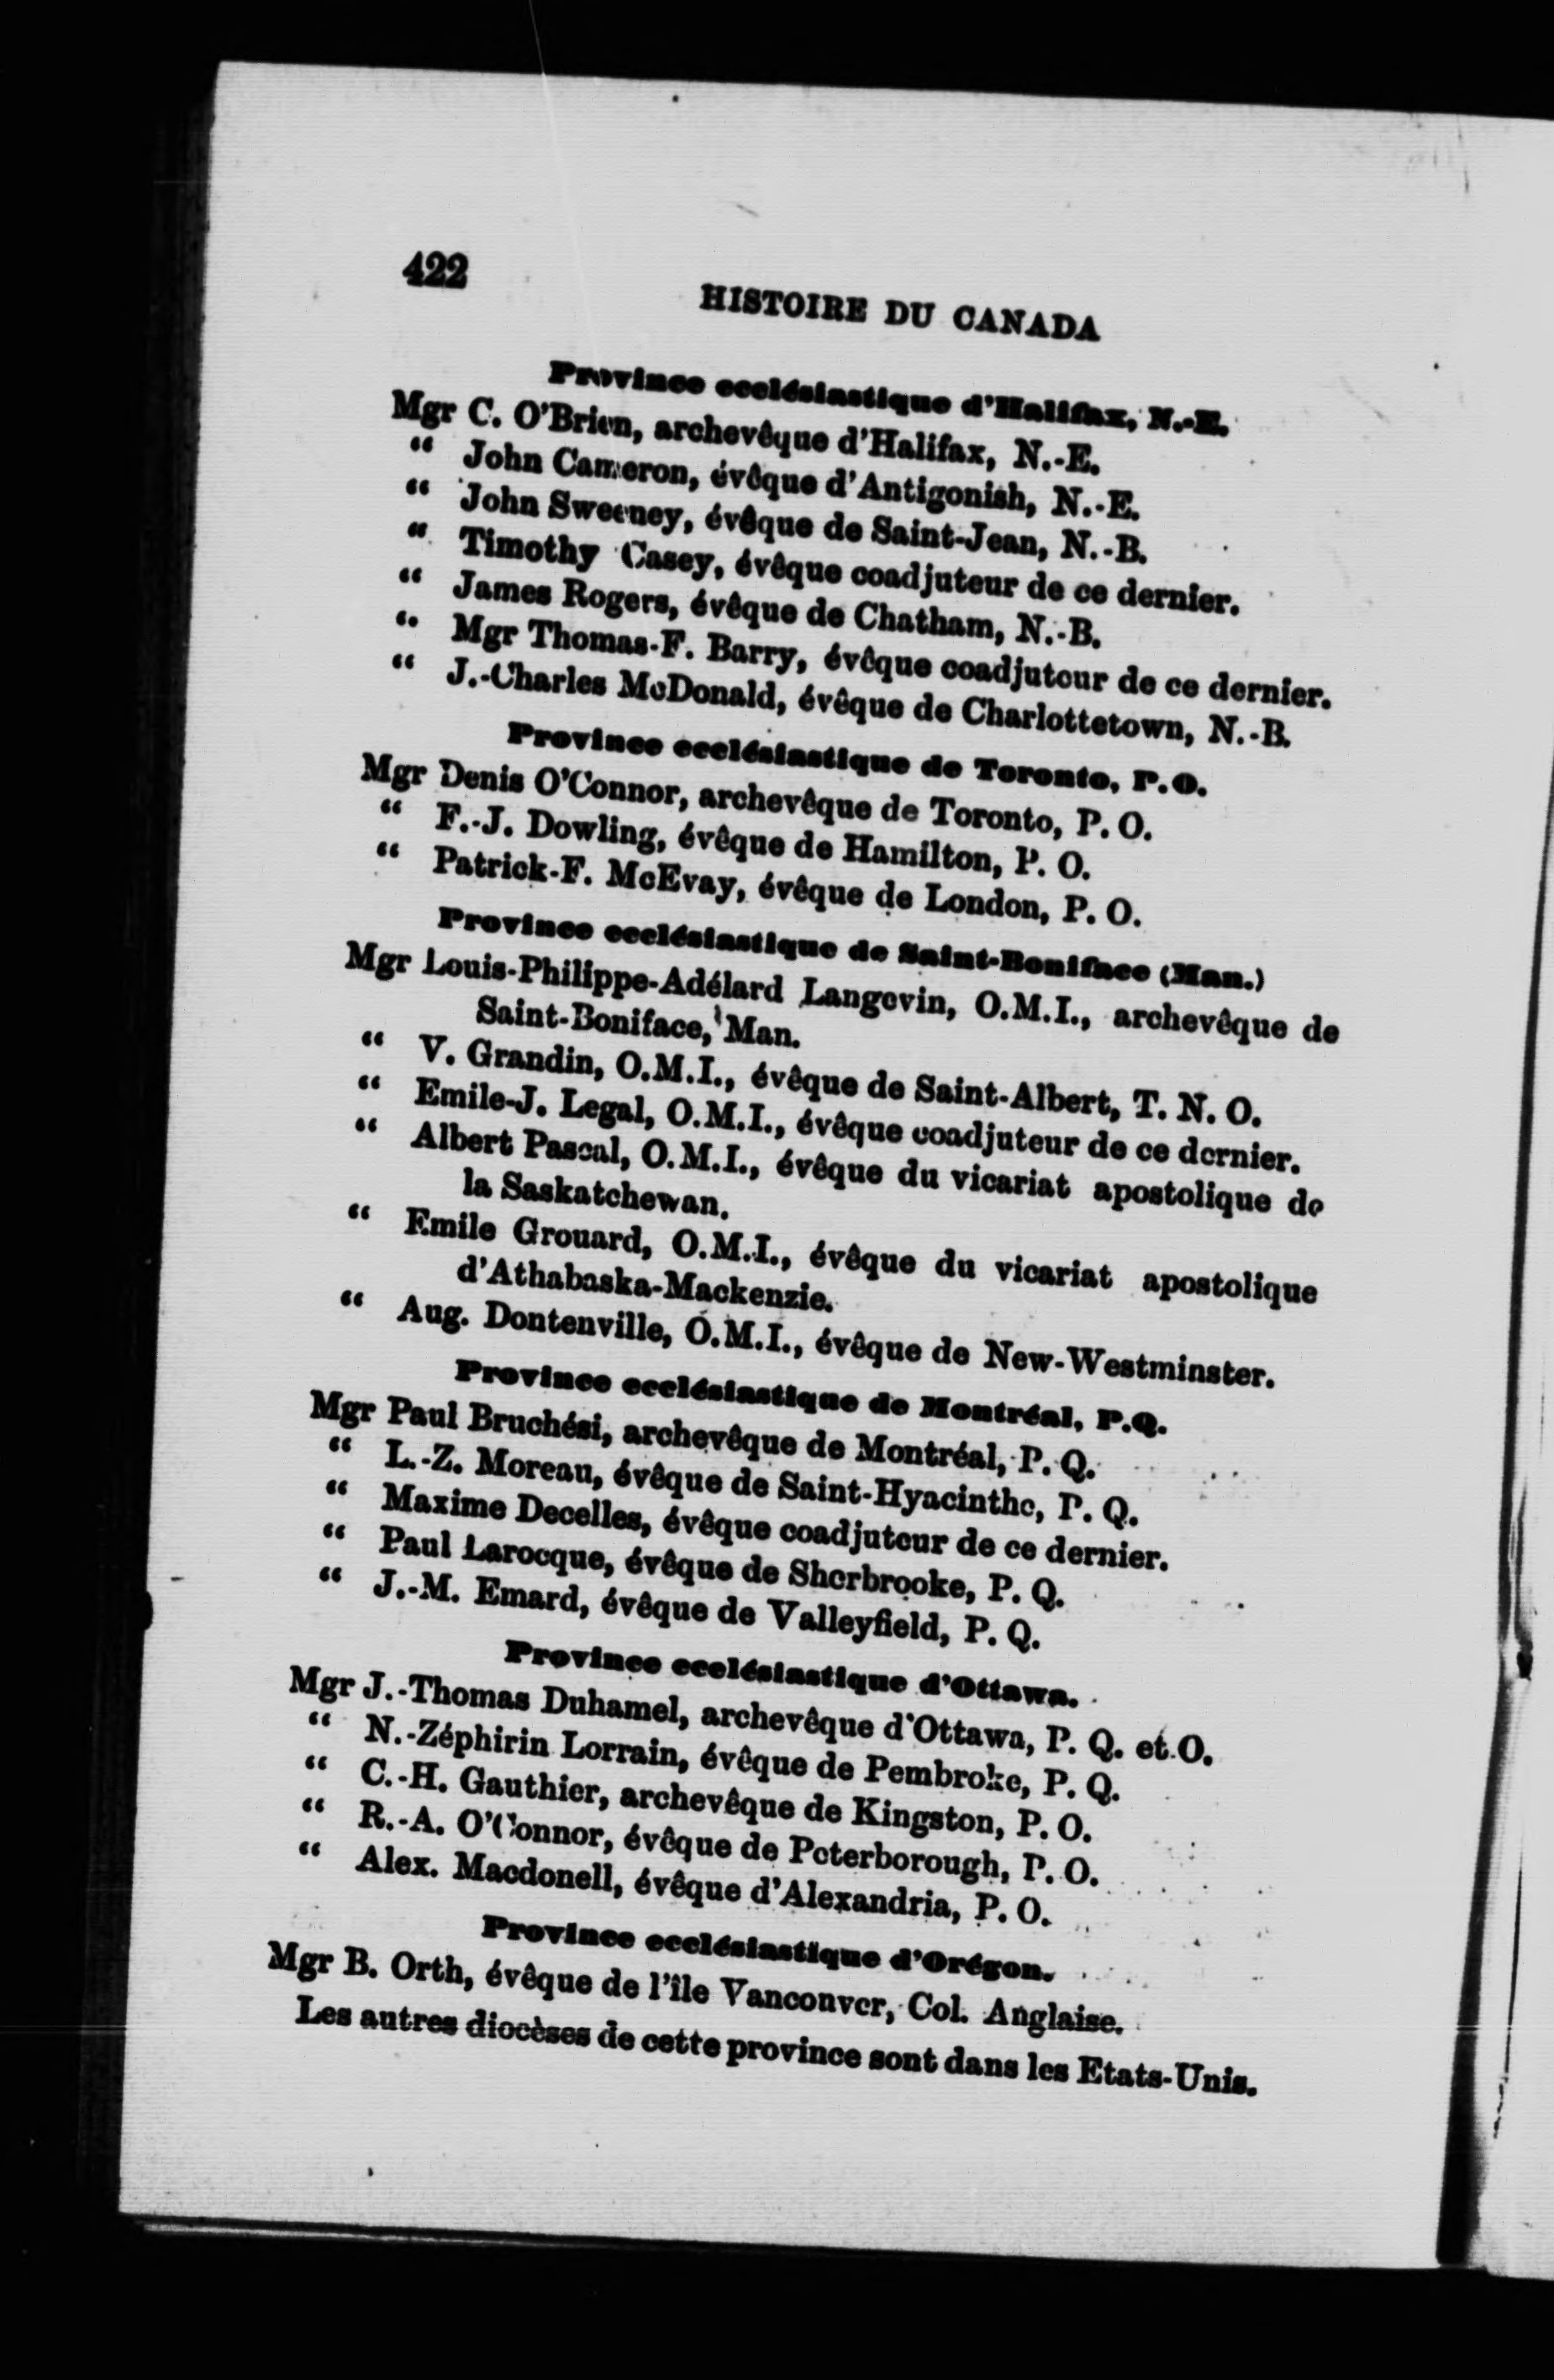 422
HISTOIRE DU CANADA
Province ecclésiastique d'Halifax, N.-E.
Mgr C. O'Brien, archevêque d'Halifax, N.-E.
“ John Cameron, évêque d'Antigonish, N.-E.
“ John Sweeney, évêque de Saint-Jean, N.-B.
“ Timothy Casey, évêque coadjuteur de ce dernier.
“ James Rogers, évêque de Chatham, N.-B.
“ Mgr Thomas-F. Barry, évêque coadjuteur de ce dernier.
“ J.-Charles McDonald, évêque de Charlottetown, N.-B.
Province ecclésiastique de Toronto, P.O.
Mgr Denis O'Connor, archevêque de Toronto, P. O.
“ F.-J. Dowling, évêque de Hamilton, P. O.
“ Patrick-F. McEvay, évêque de London, P. O.
Province ecclésiastique de Saint-Boniface (Man.)
Mgr Louis-Philippe-Adélard Langevin, O.M.I., archevêque de
Saint-Boniface, Man.
“ V. Grandin, O.M.I., évêque de Saint-Albert, T. N. O.
“ Emile-J. Legal, O.M.I., évêque coadjuteur de ce dernier.
“ Albert Pascal, O.M.I., évêque du vicariat apostolique de
la Saskatchewan.
“ Emile Grouard, O.M.I., évêque du vicariat apostolique
d'Athabaska-Mackenzie.
“ Aug. Dontenville, O.M.I., évêque de New-Westminster.
Province ecclésiastique de Montréal, P.Q.
Mgr Paul Bruchési, archevêque de Montréal, P. Q.
“ L.-Z. Moreau, évêque de Saint-Hyacinthe, P. Q.
“ Maxime Decelles, évêque coadjuteur de ce dernier.
“ Paul Larocque, évêque de Sherbrooke, P. Q.
“ J.-M. Emard, évêque de Valleyfield, P. Q.
Province ecclésiastique d'Ottawa.
Mgr J.-Thomas Duhamel, archevêque d'Ottawa, P. Q. et O.
“ N.-Zéphirin Lorrain, évêque de Pembroke, P. Q.
“ C.-H. Gauthier, archevêque de Kingston, P. O.
“ R.-A. O'Connor, évêque de Peterborough, P. O.
“ Alex. Macdonell, évêque d'Alexandria, P. O.
Province ecclésiastique d'Orégon.
Mgr B. Orth, évêque de l'île Vanconver, Col. Anglaise.
Les autres diocèses de cette province sont dans les Etats-Unis.